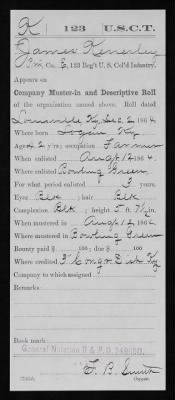 K 123 U.S.C.T.
James Kennerly
Co. E, 123 Reg't U. S. Col'd Infantry.
Appears on
Company Muster-in and Descriptive Roll
of the organization named above. Roll dated
Louisville Ky, Dec 2, 1864.
Where born Logan Ky
Age 42 y'rs; occupation Farmer
When enlisted Aug 12, 1864.
Where enlisted Bowling Green
For what period enlisted 3 years.
Eyes Blk; hair Blk
Complexion Blk; height 5 ft. 7½ in.
When mustered in Aug 12, 1864
Where mustered in Bowling Green
Bounty paid $ 100; due $ 100
Where credited 3 Congr Dist Ky
Company to which assigned
Remarks:
Book mark:
F. B. Smith
Copyist.